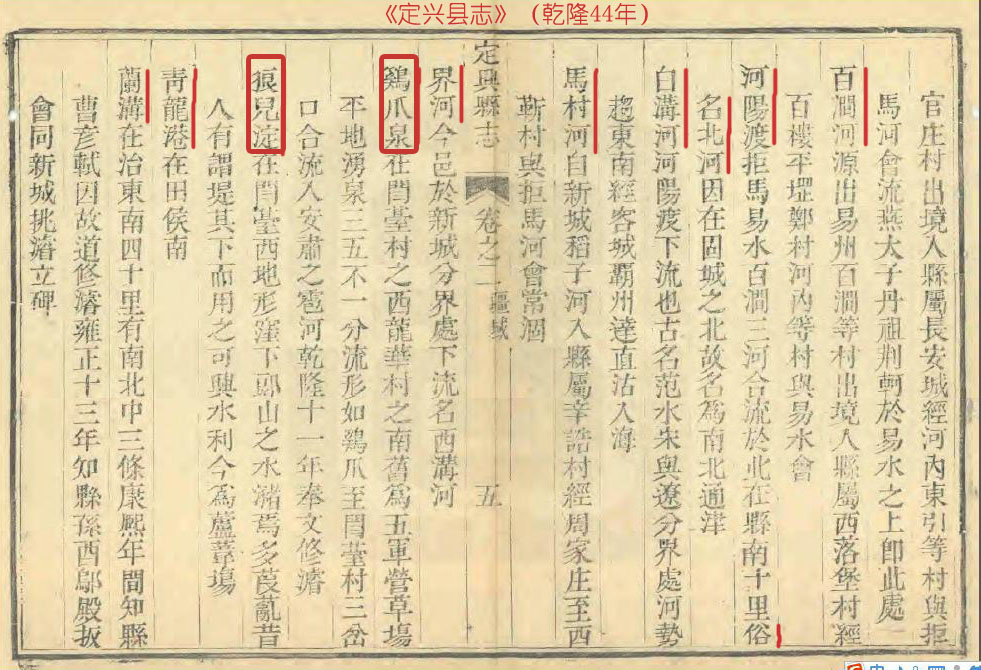 《定兴县志》（乾隆44年）
官庄村出境入縣屬長安城經河內東引等村與拒
馬河會流燕太子丹祖荆軻於易水之上卽此處
百澗河源出易州百澗等村出境入縣屬西落堡村經
百樓平堽鄭村河內等村與易水會
河陽渡拒馬易水百澗三河合流於此在縣南十里俗
名北河因在固城之北故名為南北通津
白溝河河陽渡下流也古名范水宋與遼分界處河勢
趨東南經容城霸州達直沽入海
馬村河自新城稻子河入縣屬辛誥村經周家庄至西
靳村與拒馬河會常涸
定興縣志 卷之二 疆域 五
界河今邑於新城分界處下流名西溝河
鷄爪泉在閆臺村之西龍華村之南舊為五軍營草塲
平地湧泉三五不一分流形如鷄爪至閆臺村三岔
口合流入安肅之雹河乾隆十一年奉文修濬
狼兒淀在閆臺西地形窪下郎山之水瀦焉多葭薍昔
人有謂堤其下而用之可興水利今為蘆葦塲
青龍港在田侯南
蘭溝在治東南四十里有南北中三條康熙年間知縣
曹彥軾因故道修濬雍正十三年知縣孫酉鄔殿扳
會同新城挑濬立碑